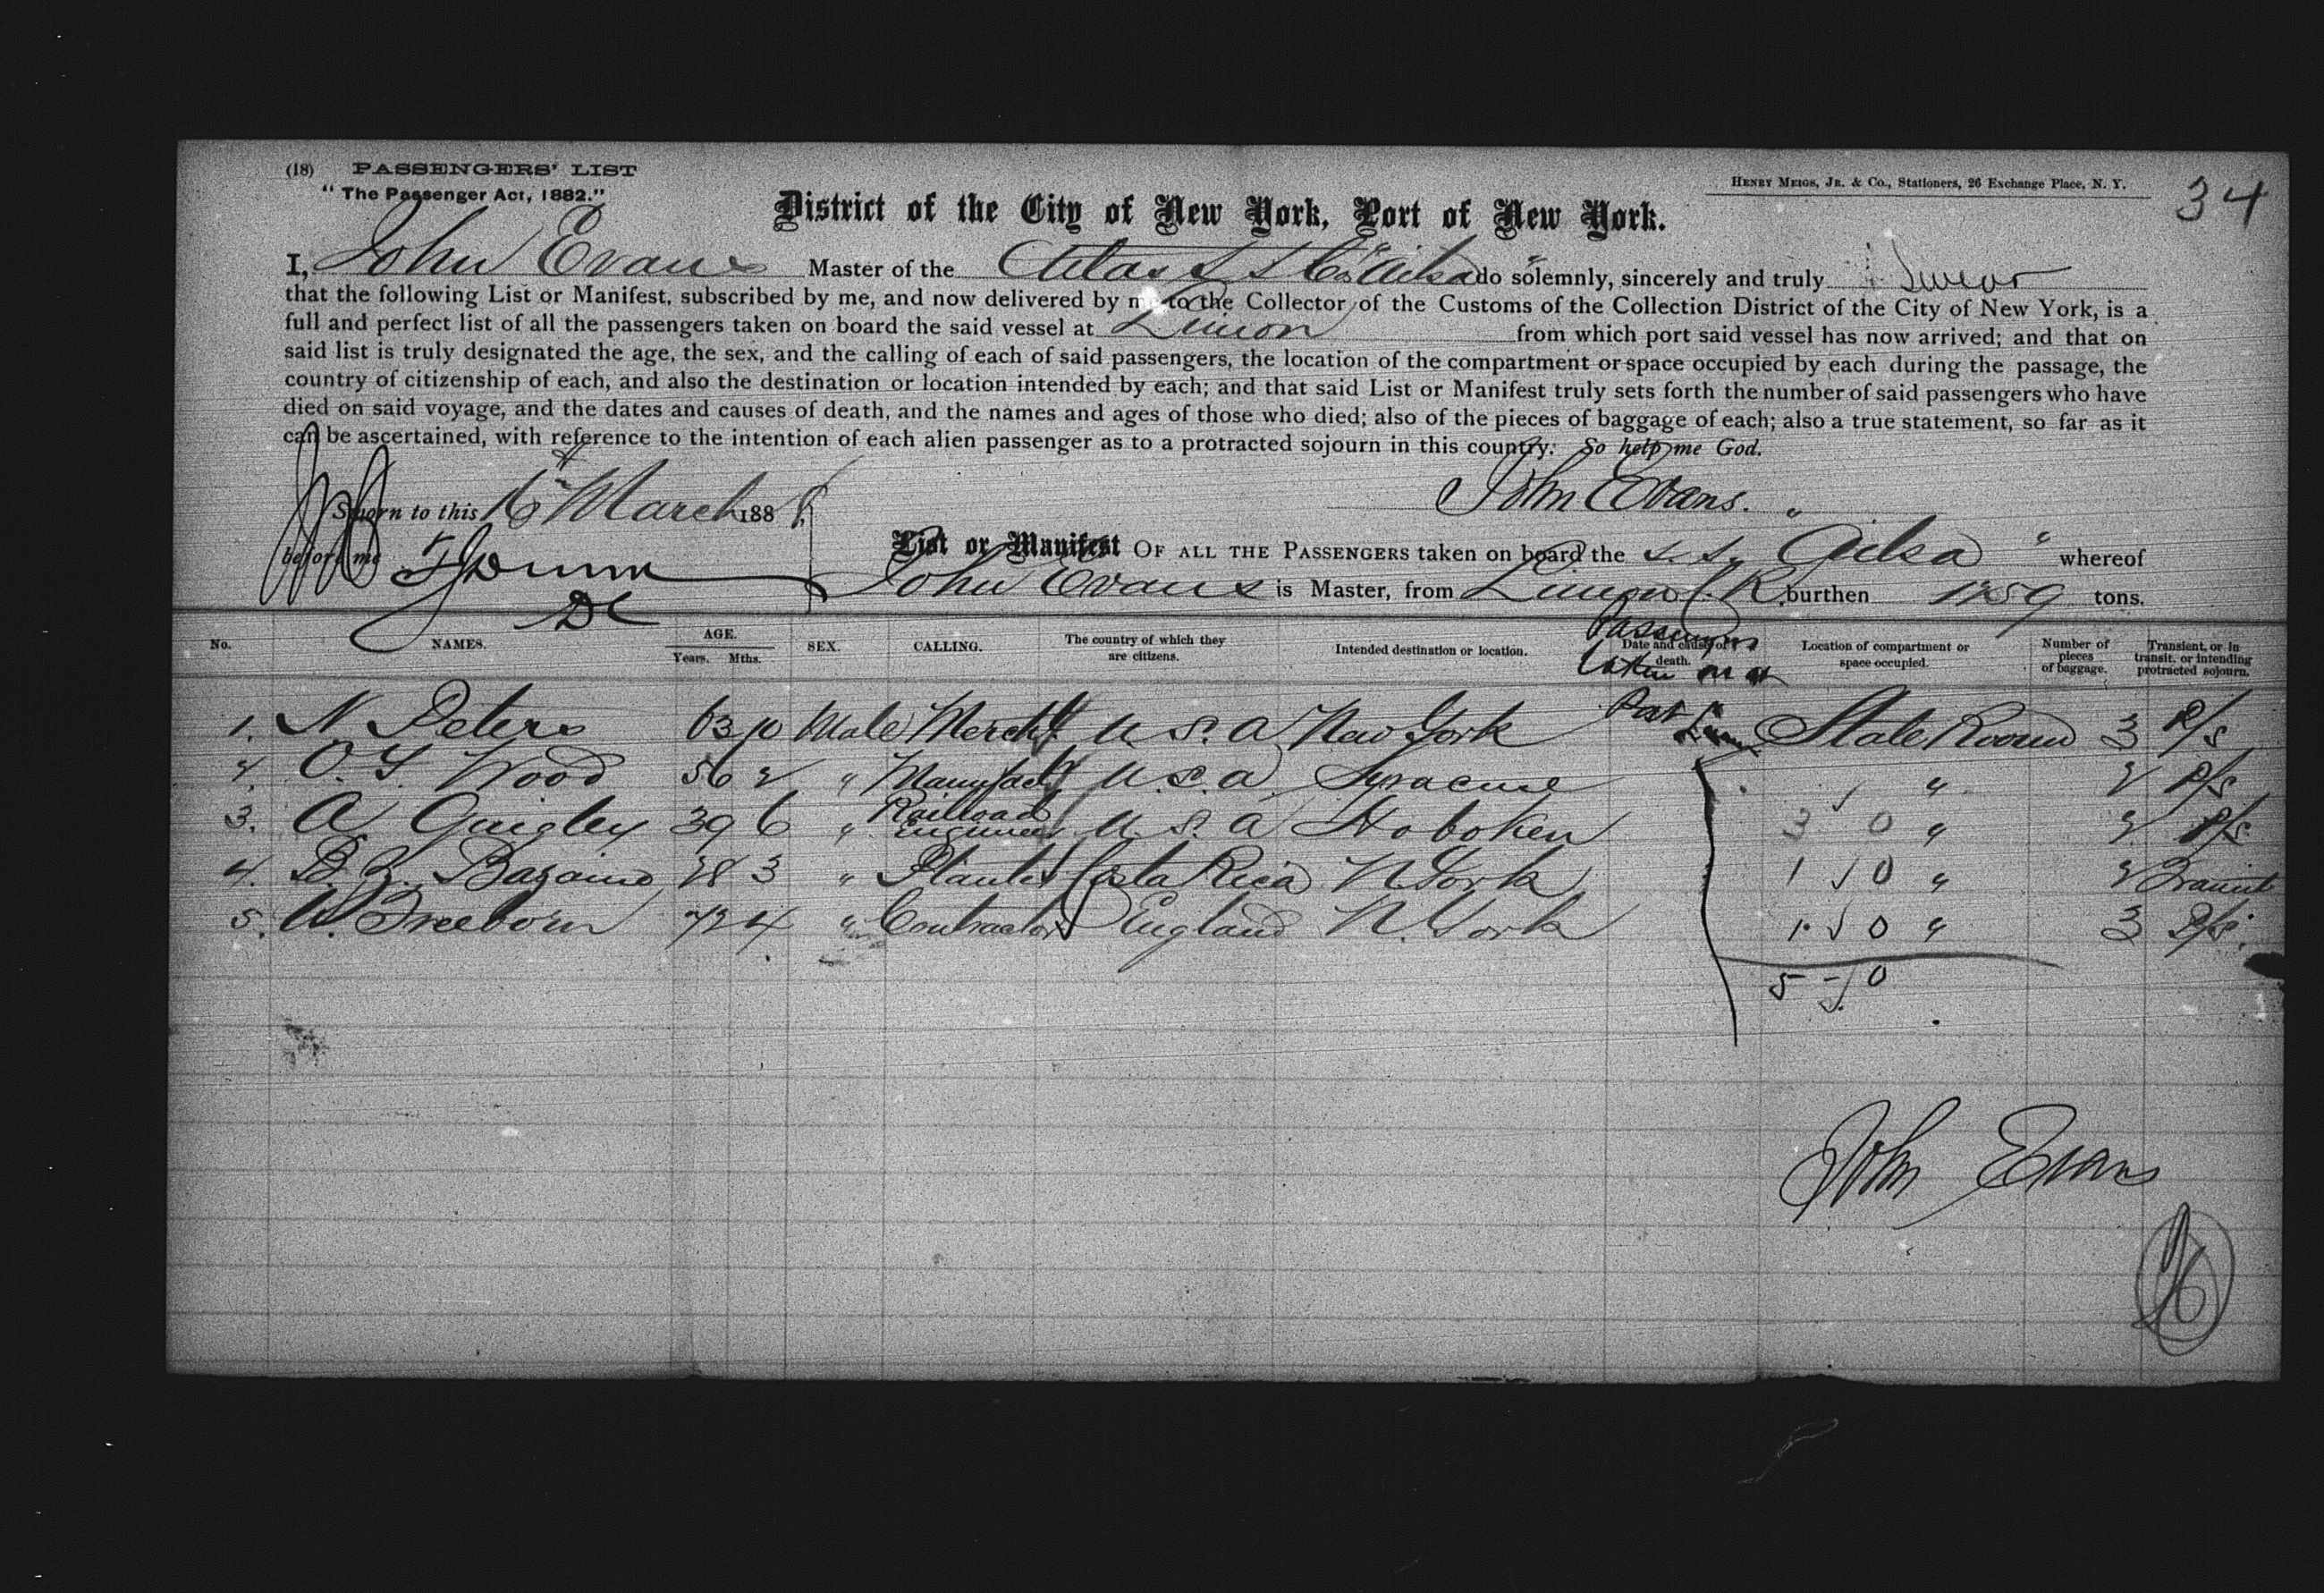 (18) PASSENGERS' LIST
"The Passenger Act, 1882."
HENRY MEIGS, JR. & CO., Stationers, 26 Exchange Place, N. Y.
34
District of the City of New York, Port of New York.
I, John Evans Master of the Atlas S S Co's "Ailsa" do solemnly, sincerely and truly swear
that the following List or Manifest, subscribed by me, and now delivered by me to the Collector of the Customs of the Collection District of the City of New York, is a
full and perfect list of all the passengers taken on board the said vessel at Limon from which port said vessel has now arrived; and that on
said list is truly designated the age, the sex, and the calling of each of said passengers, the location of the compartment or space occupied by each during the passage, the
country of citizenship of each, and also the destination or location intended by each; and that said List or Manifest truly sets forth the number of said passengers who have
died on said voyage, and the dates and causes of death, and the names and ages of those who died; also of the pieces of baggage of each; also a true statement, so far as it
can be ascertained, with reference to the intention of each alien passenger as to a protracted sojourn in this country. So help me God.
Sworn to this 16th March 188
John Evans.
before me
List or Manifest OF ALL THE PASSENGERS taken on board the S. S. "Ailsa" whereof
John Evans is Master, from Limon C.R. burthen 1259 tons.
No. NAMES. AGE. Years. Mths. SEX. CALLING. The country of which they are citizens. Intended destination or location. Date and cause of death. Location of compartment or space occupied. Number of pieces of baggage. Transient, or in transit, or intending protracted sojourn.
Passengers taken on at Port Limon
1. N. Peters 63 10 Male Mercht U.S.A New York State Room 3 P/S
2. O. G. Wood 56 2 " Manufactr U.S.A Syracuse " 2 P/S
3. A Quigley 39 6 " Railroad Engineer U.S.A Hoboken 3 0 " 2 P/S
4. B. Z. Bazaine 28 3 " Planter Costa Rica N. York 1 0 " 2 Transit
5. W. Freeborn 72 4 " Contractor England N. York 1 0 " 3 P/S.
5 - 0
John Evans